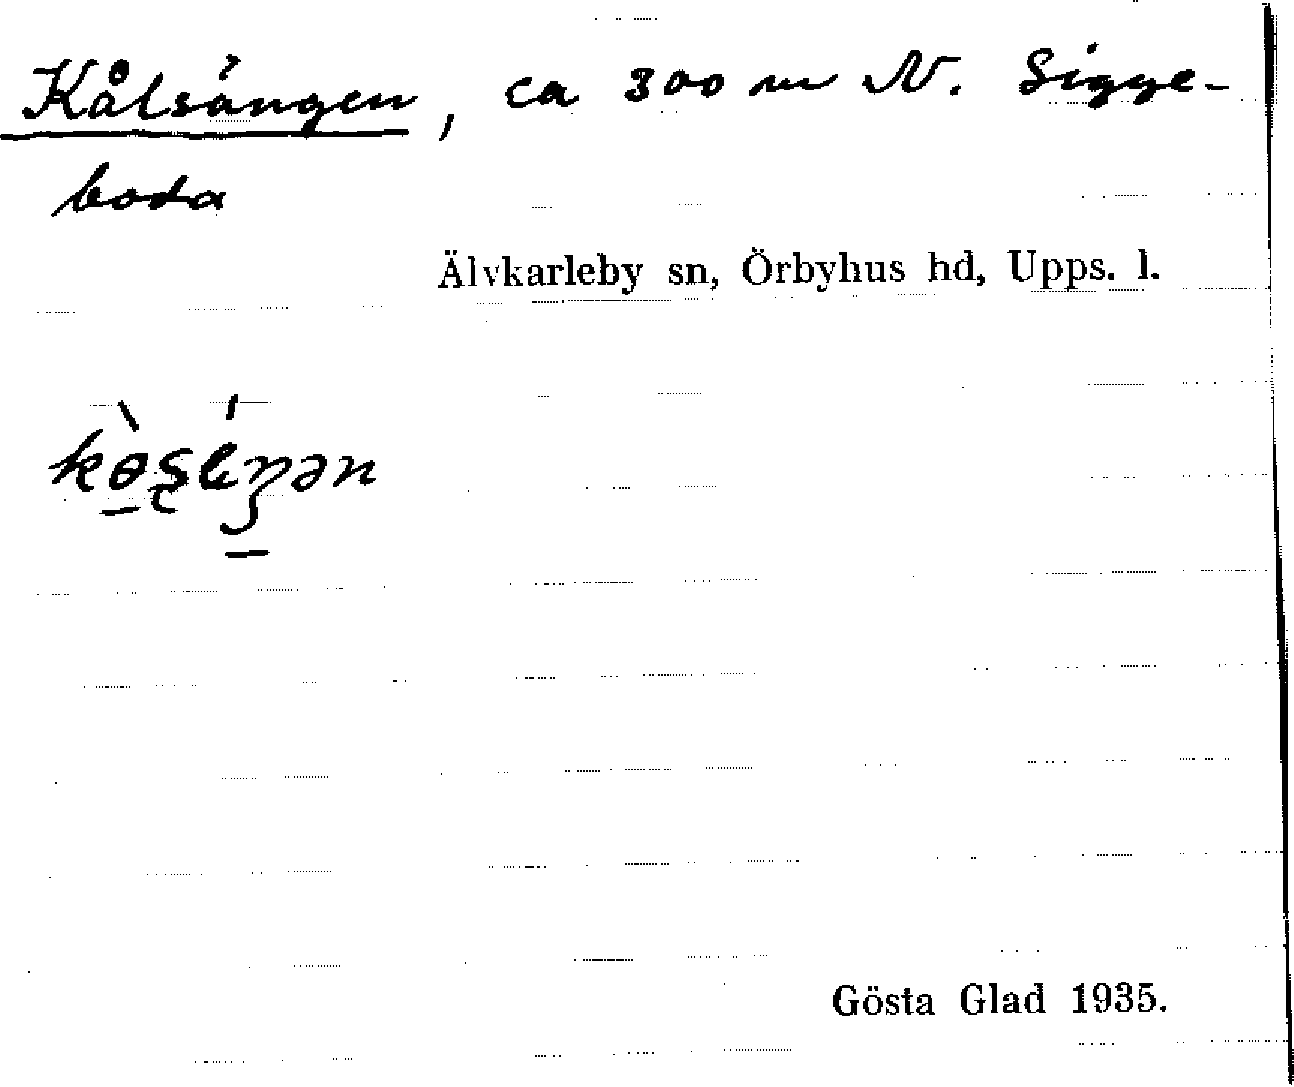 Kålsängen, ca 300 m N. Sigge-
boda
Älvkarleby sn, Örbyhus hd, Upps. l.
Gösta Glad 1935.